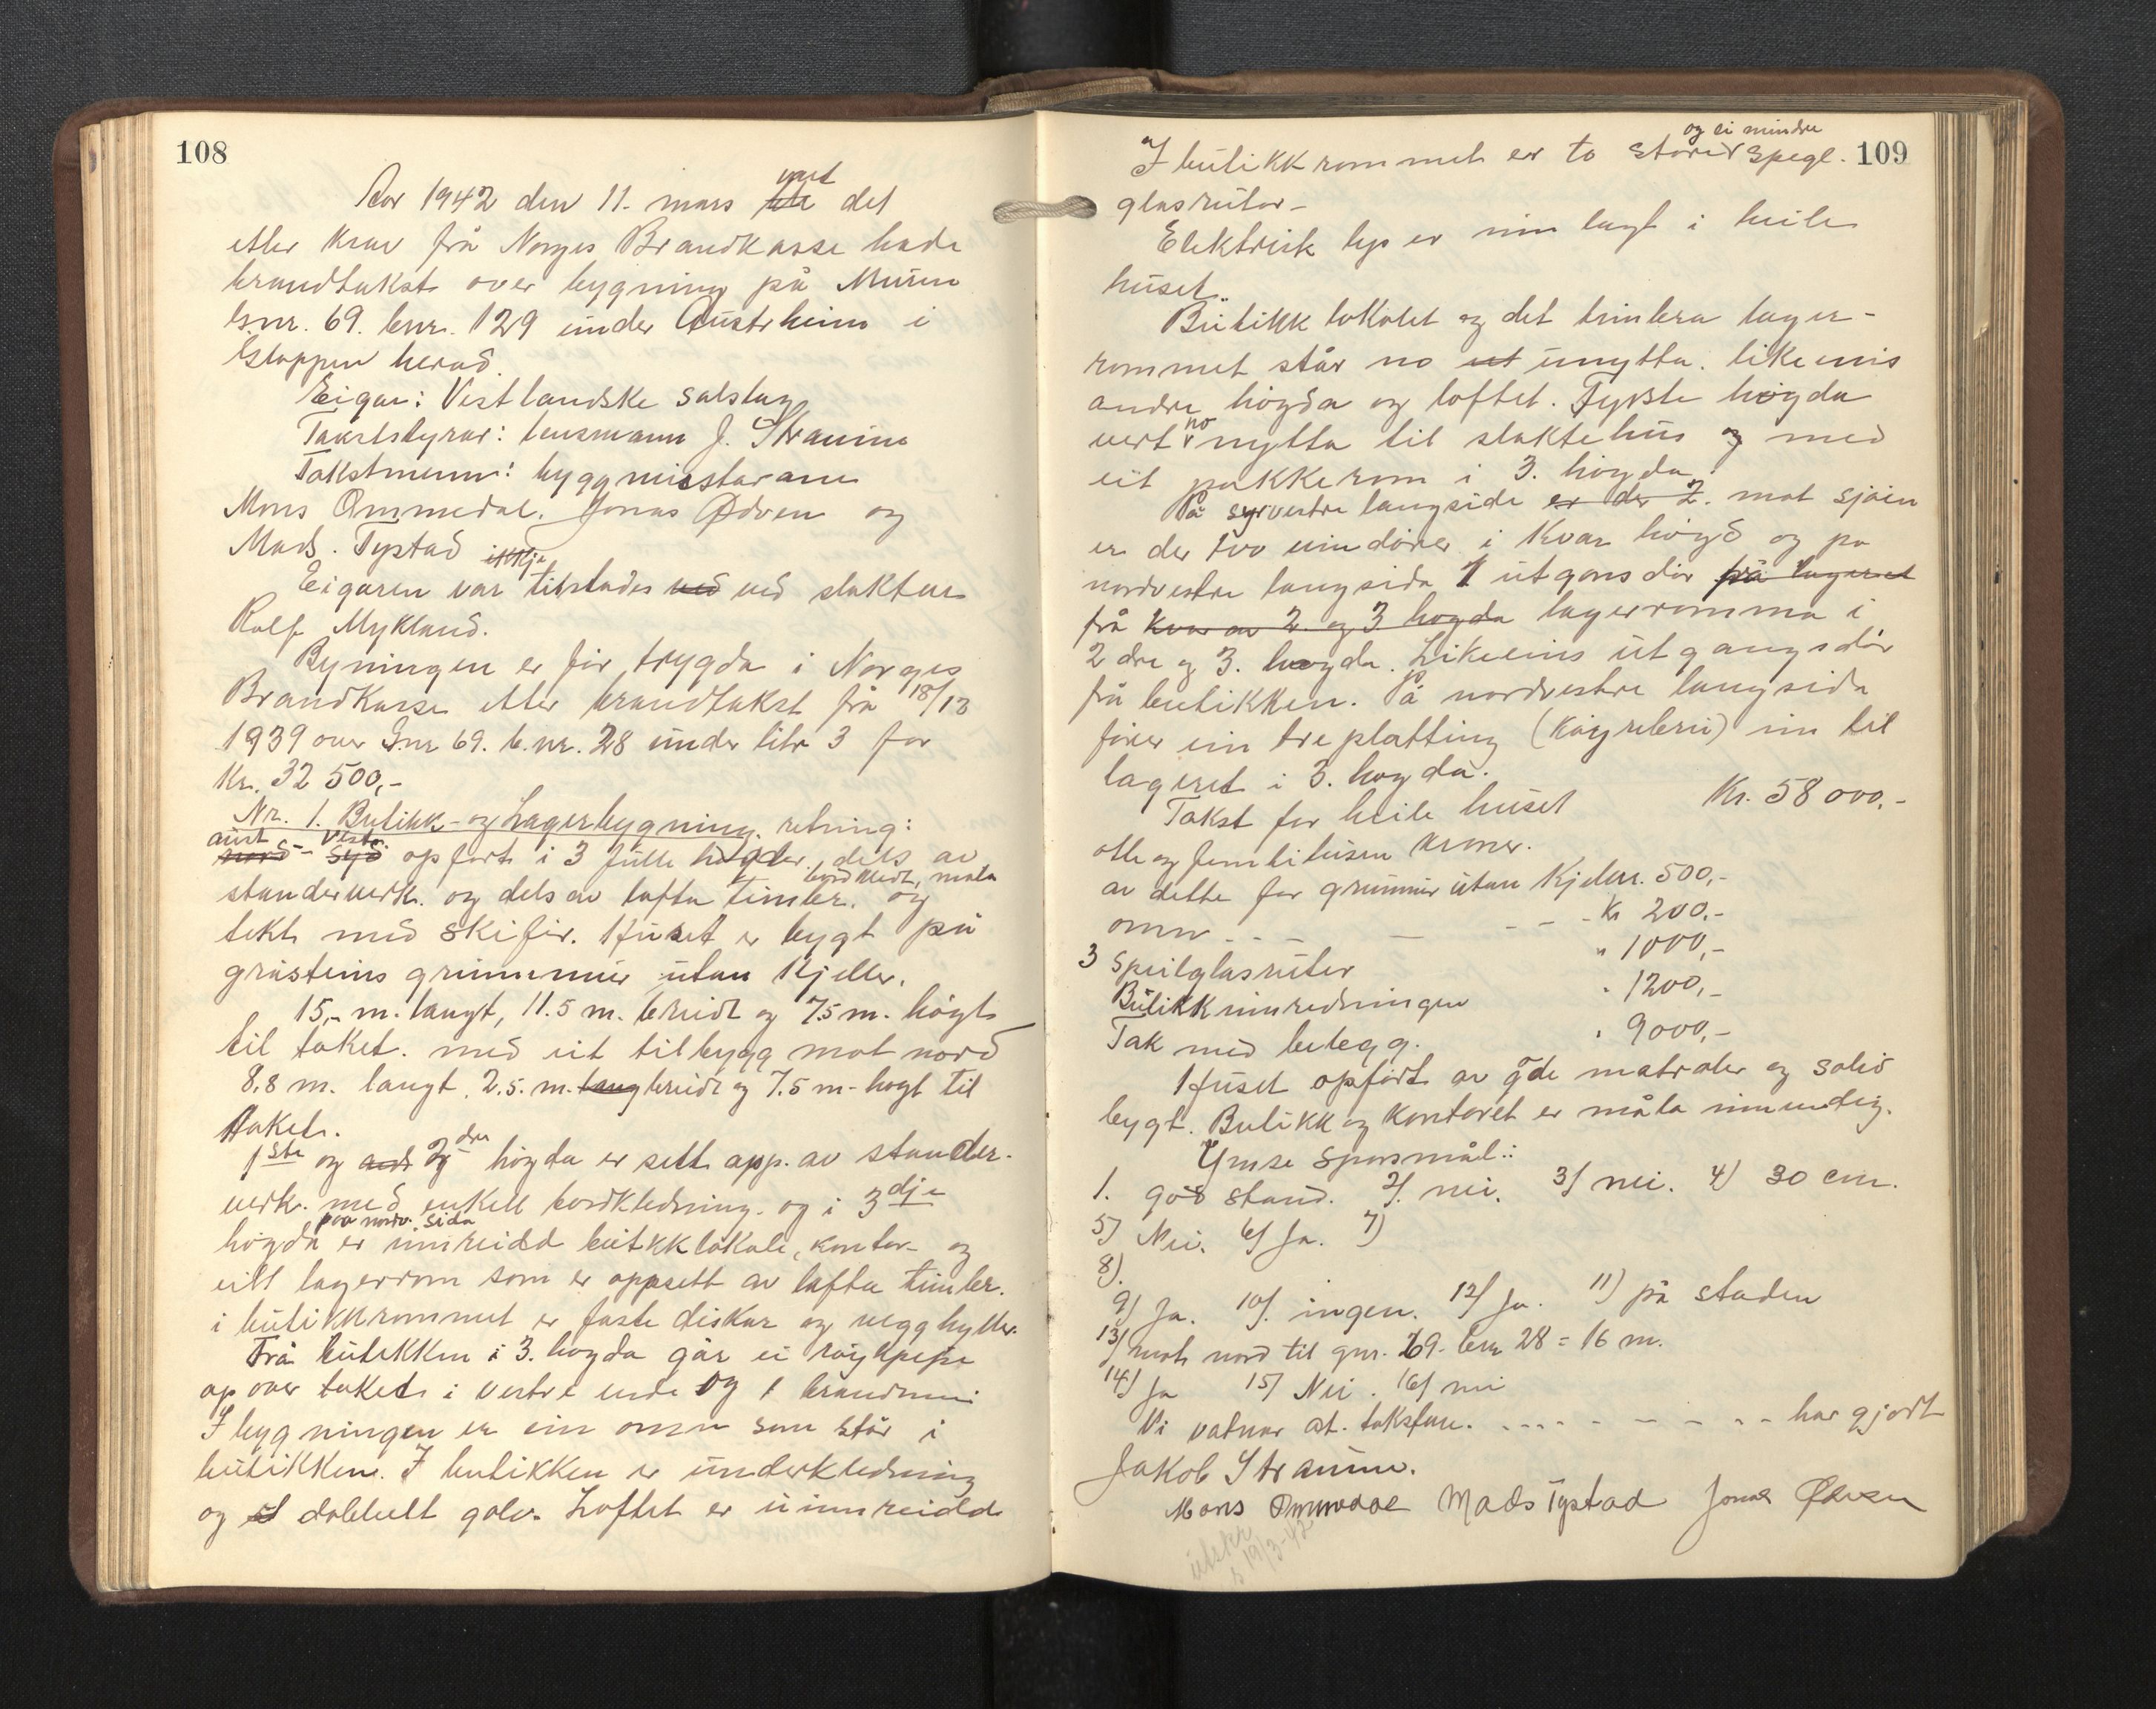 108
Aar 1942 den 11. mars vart det
etter krav frå Norges Brandkasse halde
brandtakst over bygning på Muren
Gnr. 69. bnr. 129 under Austrheim i
Gloppen herad.
Eigar: Vestlandske salslag
Takststyrar: lensmann J. Straume
Takstmenn: byggmeistarane
Mons Ommedal. Jonas Ødven og
Mads. Tystad
Eigaren var ikkje tilstades ved ved slaktar
Rolf Mykland.
Byningen er før trygda i Norges
Brandkasse etter brandtakst frå 18/13
1939 over Gnr 69. b.nr. 28 under litr 3 for
Kr. 32 500,-
Nr. 1. Butikk- og Lagerbygning. retning:
aust - vest.
nord - syd opført i 3 fulle høgder, dels av
standerverk. og dels av lafta timber. bordkledt, mala og
tekt med skifer. Huset er bygt på
gråsteins grunnmur utan kjeller.
15,- m. langt, 11.5 m. breidt og 7.5 m. högt
til taket. med eit tilbygg mot nord
8.8 m. langt. 2.5. m. lang breidt og 7.5 m- hogt til
taket.
1ste og 2dre högda er sett opp. av stander-
verk. med enkell bordkledning. og i 3dje
högda paa nordv. sida er innreidd butikklokale, kontor og
eitt lagerrom som er oppsett av lafta timber.
i butikkrommet er faste diskar og vegghyller.
Frå butikken i 3. høgda går ei røykpipe
op over taket i vestre ende og 1 brandmur
I bygningen er ein omn som står i
butikken. I butikken er underkledning
og dobbelt golv. Loftet er uinnreidd
109
I butikkrommet er to store og ei mindre spegl-
glasrutor-
Elektrisk lys er inn lagt i heile
huset.
Butikk lokalet og det timbra lager-
rommet står no ut unytta. likeeins
andre høgda og loftet. Fyrste høgda
vert no nytta til slaktehus og med
eit pakkerom i 3. høgda.
På syrvestre langside er der 2. mot sjøen
er der tvo eindører i kvar høgd og på
nordvestre langsida 1 utgansdör frå lageret
frå kvar av 2. og 3 høgda lagerromma i
2 dre og 3. høgda. Likeeins utgangsdör
frå butikken. På nordvestre langsida
fører ein tre platting (køyrebru) inn til
lageret i 3. høgda.
Takst for heile huset Kr. 58 000,-
otte og femti tusen kroner.
av dette for grunnmur utan kjeller. 500,-
omn - - - Kr 200.-
3 speilglasruter " 1000,-
Butikkinnredningen " 1200,-
Tak med belegg. " 9000,-
Huset opført av gode matrialer og solid
bygt. Butikk og kontoret er måla innvendig.
Ymse Spørsmål:
1. god stand. 2/. nei. 3/ nei. 4/ 30 cm.
5) Nei. 6/ Ja. 7)
8).
9/ Ja. 10/. ingen. 12/ Ja. 11) på staden
13/ mot nord til gnr. 69. bnr 28 = 16 m.
14/ Ja 15/ Nei. 16/ nei
Vi vatnar at. takstfun. . - - - - - - - har gjort
Jakob Straume.
Mons Ommedal Mads Tystad Jonas Ødven
utskr.
s 19/3-42